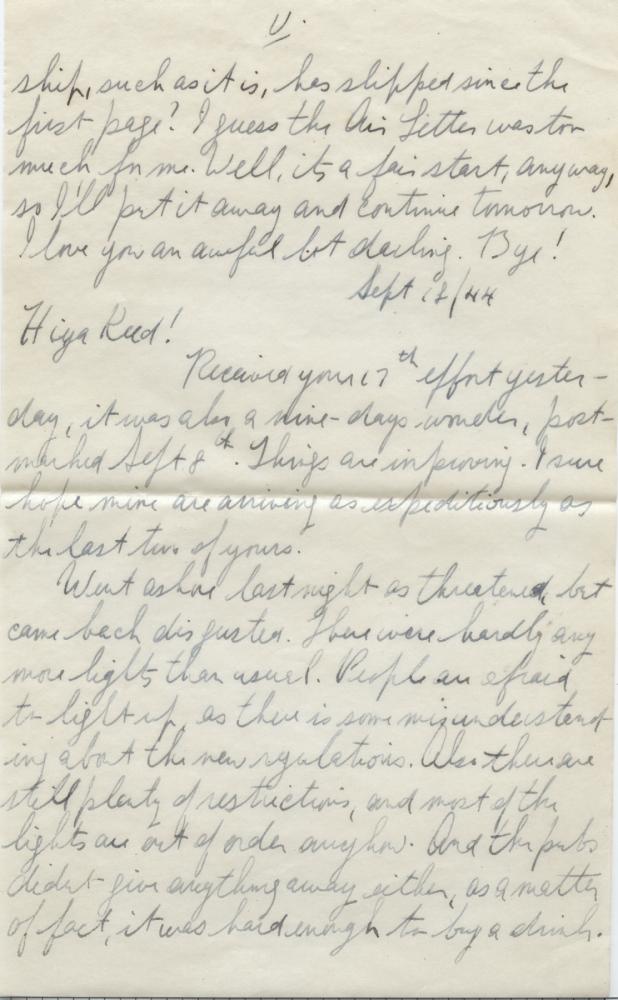 V.
ship, such as it is, has slipped since the
first page? I guess the Air Letter was too
much for me. Well, it's a fair start, anyway,
so I'll put it away and continue tomorrow.
I love you an awful lot darling. Bye!
Sept 18/44
Hiya Keed!
Received your 17th effort yester-
day, it was also a nine-days wonder, post-
marked Sept 8th. Things are improving. I sure
hope mine are arriving as expeditiously as
the last two of yours.
Went ashore last night as threatened, but
came back disgusted. There were hardly any
more lights than usual. People are afraid
to light up, as there is some misunderstand-
ing about the new regulations. Also there are
still plenty of restrictions, and most of the
lights are out of order anyhow. And the pubs
didn't give anything away either, as a matter
of fact, it was hard enough to buy a drink.